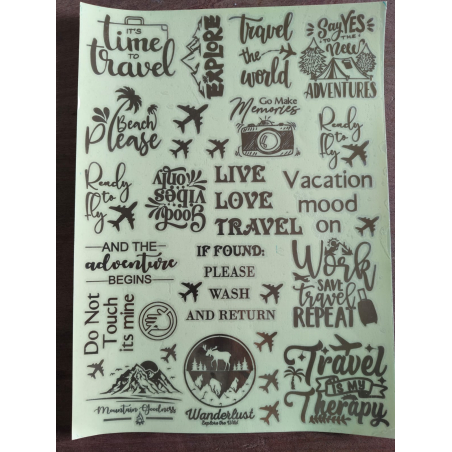 IT'S
time
TO
travel
EXPLORE
Travel
the
world
Say YES
TO THE
New
ADVENTURES
Beach
Please
Go Make
Memories
Ready
to
fly
Ready
to
fly
Good
vibes
only
LIVE
LOVE
TRAVEL
Vacation
mood
on
AND THE
adventure
BEGINS
IF FOUND:
PLEASE
WASH
AND RETURN
Work
SAVE
travel
REPEAT
Do Not
Touch
its mine
Mountain Goodness
Wanderlust
Explore the Wild
Travel
IS MY
Therapy